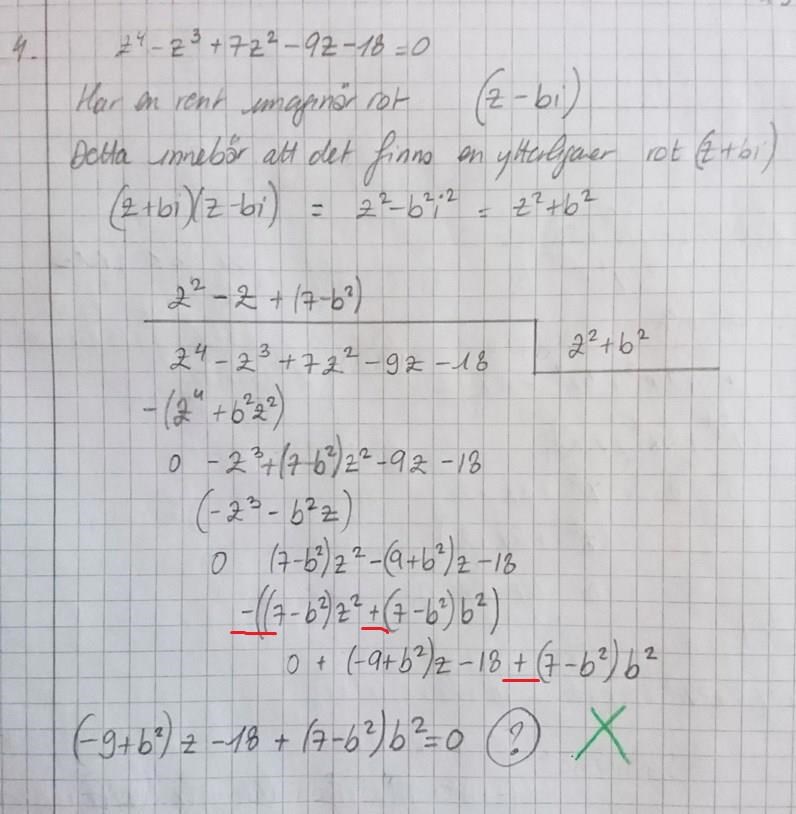 4. z⁴ - z³ + 7z² - 9z - 18 = 0
Har en rent imaginär rot (z - bi)
Detta innebär att det finns en ytterligaer rot (z + bi)
(z+bi)(z-bi) = z² - b²i² = z² + b²
z² - z + (7-b²)
z⁴ - z³ + 7z² - 9z - 18 z² + b²
-(z⁴ + b²z²)
0 - z³ + (7-b²)z² - 9z - 18
(-z³ - b²z)
0 (7-b²)z² - (9+b²)z - 18
-((7-b²)z² + (7-b²)b²)
0 + (-9+b²)z - 18 + (7-b²)b²
(-9+b²)z - 18 + (7-b²)b² = 0 (?) X